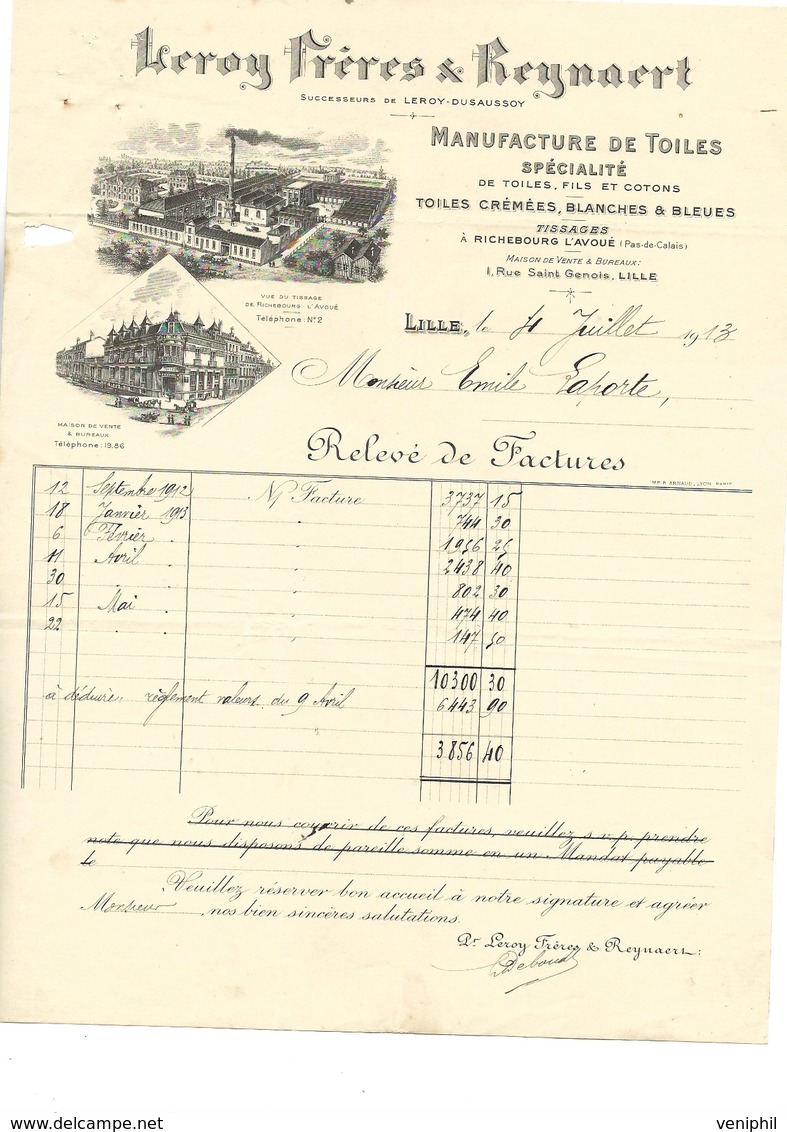 Leroy Frères & Reynaert
Successeurs de LEROY-DUSAUSSOY
MANUFACTURE DE TOILES
SPÉCIALITÉ
DE TOILES, FILS ET COTONS
TOILES CRÉMÉES, BLANCHES & BLEUES
TISSAGES
À RICHEBOURG L'AVOUÉ (Pas-de-Calais)
MAISON DE VENTE & BUREAUX:
1, Rue Saint Genois, LILLE
VUE DU TISSAGE
DE RICHEBOURG L'AVOUÉ
Téléphone: N°2
MAISON DE VENTE
& BUREAUX
Téléphone: 19.86
LILLE, le 4 Juillet 1913
Monsieur Emile Laporte,
Relevé de Factures
IMP. B. ARNAUD, LYON PARIS
12 Septembre 1912 N/ Facture 3737 15
18 Janvier 1913 " 744 30
6 Février . " 1956 25
11 Avril . " 2438 40
30 . . " 802 30
15 Mai . " 474 40
22 . . " 147 50
10300 30
à déduire, règlement valeurs du 9 Avril 6443 90
3856 40
Pour nous couvrir de ces factures, veuillez s.v.p. prendre
note que nous disposons de pareille somme en un Mandat payable
le
Veuillez réserver bon accueil à notre signature et agréer
Monsieur, nos bien sincères salutations.
Pr Leroy Frères & Reynaert:
veniphil